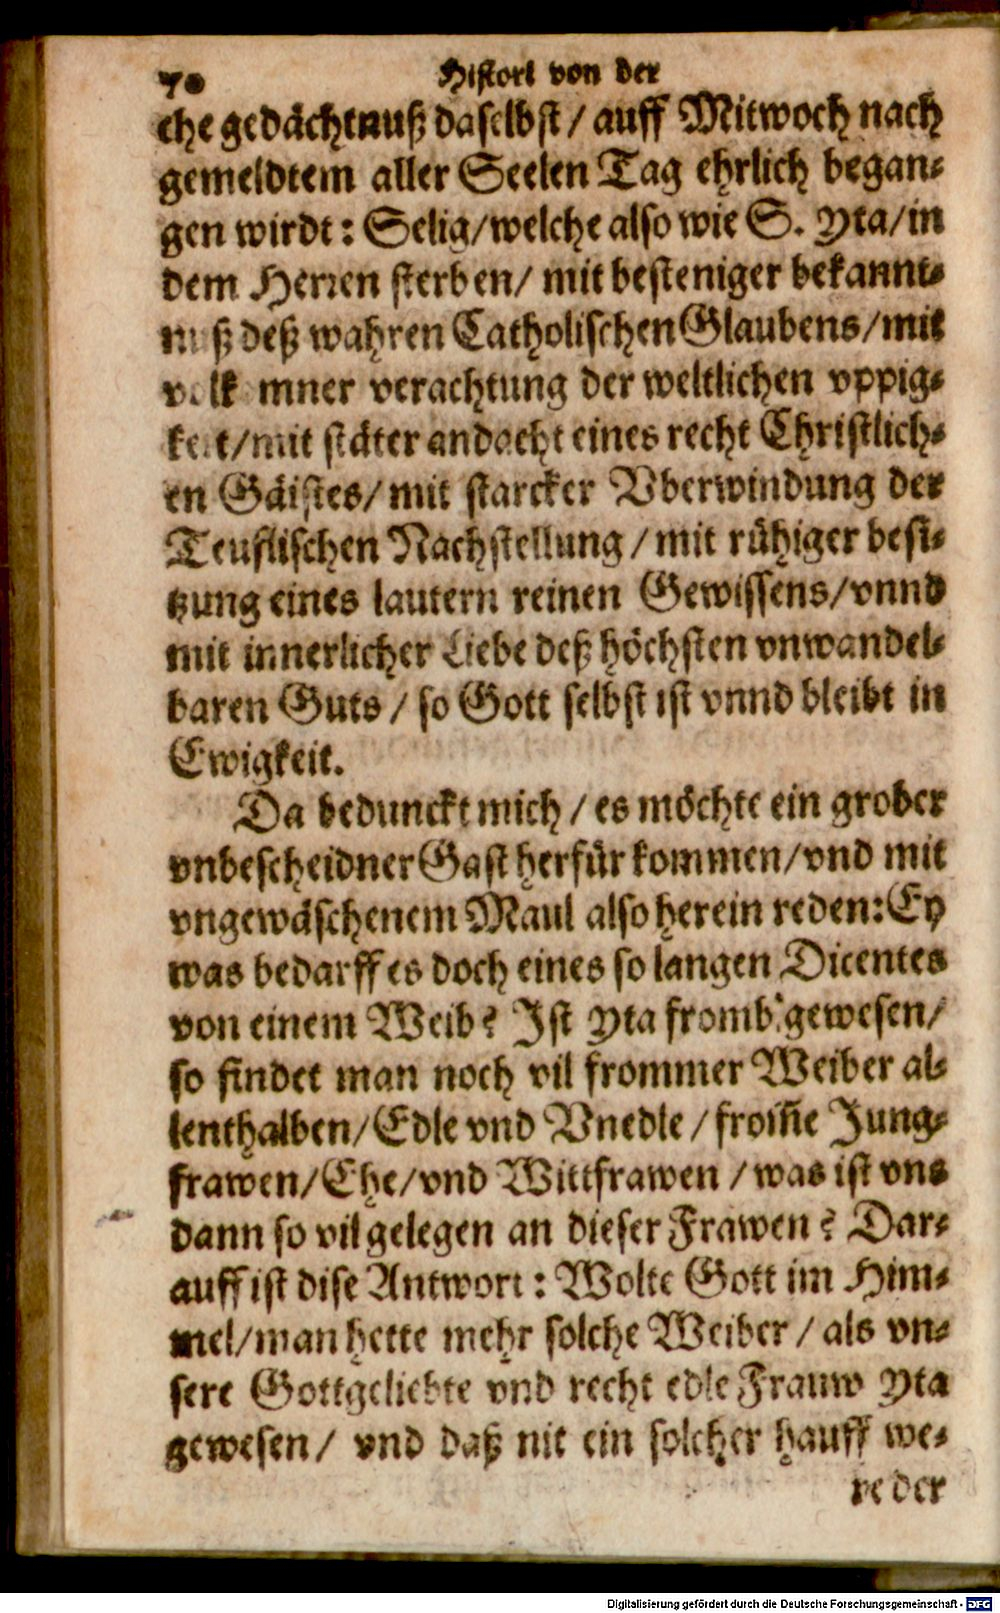 70 Histori von der
che gedächtnuß daselbst / auff Mitwoch nach
gemeldtem aller Seelen Tag ehrlich began-
gen wirdt: Selig/welche also wie S. Yta/in
dem Herren sterben/ mit besteniger bekannt-
nuß deß wahren Catholischen Glaubens/mit
volkomner verachtung der weltlichen vppig-
keit/mit stäter andacht eines recht Christlich-
en Gäistes/ mit starcker Vberwindung der
Teuflischen Nachstellung / mit rühiger besi-
tzung eines lautern reinen Gewissens/vnnd
mit innerlicher Liebe deß höchsten vnwandel-
baren Guts / so Gott selbst ist vnnd bleibt in
Ewigkeit.
Da bedunckt mich / es möchte ein grober
vnbescheidner Gast herfür kommen/vnd mit
vngewäschenem Maul also herein reden: Ey
was bedarff es doch eines so langen Dicentes
von einem Weib? Ist Yta fromb gewesen/
so findet man noch vil frommer Weiber al-
lenthalben/Edle vnd Vnedle / from̃e Jung-
frawen/Ehe/vnd Wittfrawen / was ist vns
dann so vil gelegen an dieser Frawen? Dar-
auff ist dise Antwort: Wolte Gott im Him-
mel/man hette mehr solche Weiber / als vn-
sere Gottgeliebte vnd recht edle Frauw Yta
gewesen / vnd daß nit ein solcher hauff we-
re der
Digitalisierung gefördert durch die Deutsche Forschungsgemeinschaft - DFG